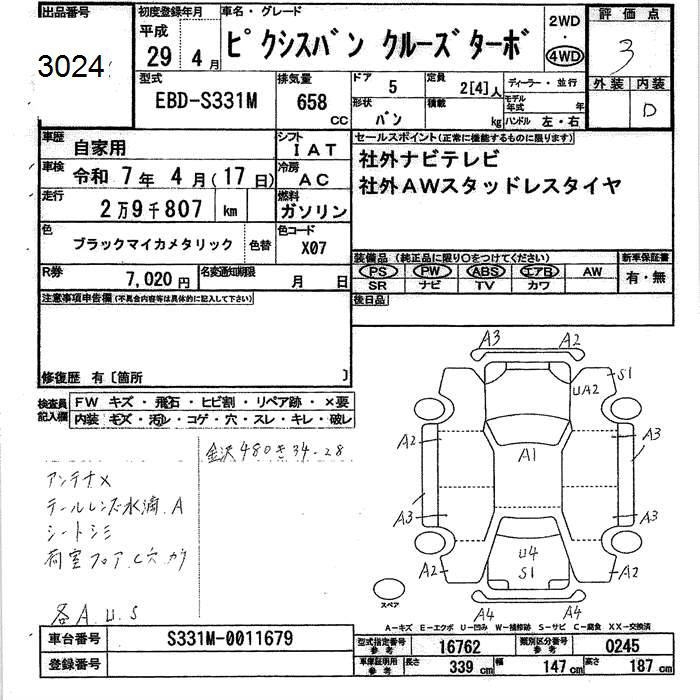 出品番号
3024
初度登録年月
平成
29 年 4 月
車名・グレード
ピクシスバン クルーズターボ
2WD
・
4WD
評価点
3
外装 内装
D
型式
EBD-S331M
排気量
658 CC
ドア 5
形状 バン
定員 2[4]人
積載 kg
ディーラー・並行
モデル年式 年
ハンドル 左・右
車歴 自家用
シフト IAT
車検 令和 7年 4月(17日)
冷房 AC
走行 2万9千807 km
燃料 ガソリン
色 ブラックマイカメタリック 色替
色コード X07
R券 7,020円
名変通知期限 月 日
セールスポイント(正常に機能するものに限ります)
社外ナビテレビ
社外AWスタッドレスタイヤ
装備品 (純正品に限り○をつけてください)
PS PW ABS エアB AW
SR ナビ TV カワ
新車保証書
有・無
後日品
注意事項申告欄(不具合内容等は具体的に記入して下さい)
修復歴 有〔箇所 〕
検査員記入欄
FW キズ・飛石・ヒビ割・リペア跡・×要
内装 キズ・汚レ・コゲ・穴・スレ・キレ・破レ
金沢480き34-28
アンテナ×
テールレンズ水滴.A
シートシミ
荷室フロア.C穴.カケ
各A.U.S
A3 A2
S1
UA2
A2 A3
A1
A3 A3
U4
S1
A2 A2
A4 A4
スペア
A-キズ E-エクボ U-凹み W-補修跡 S-サビ C-腐食 XX-交換済
車台番号 S331M-0011679
登録番号
型式指定番号 参考 16762
類別区分番号 参考 0245
車庫証明用 参考 長さ 339 cm 幅 147 cm 高さ 187 cm